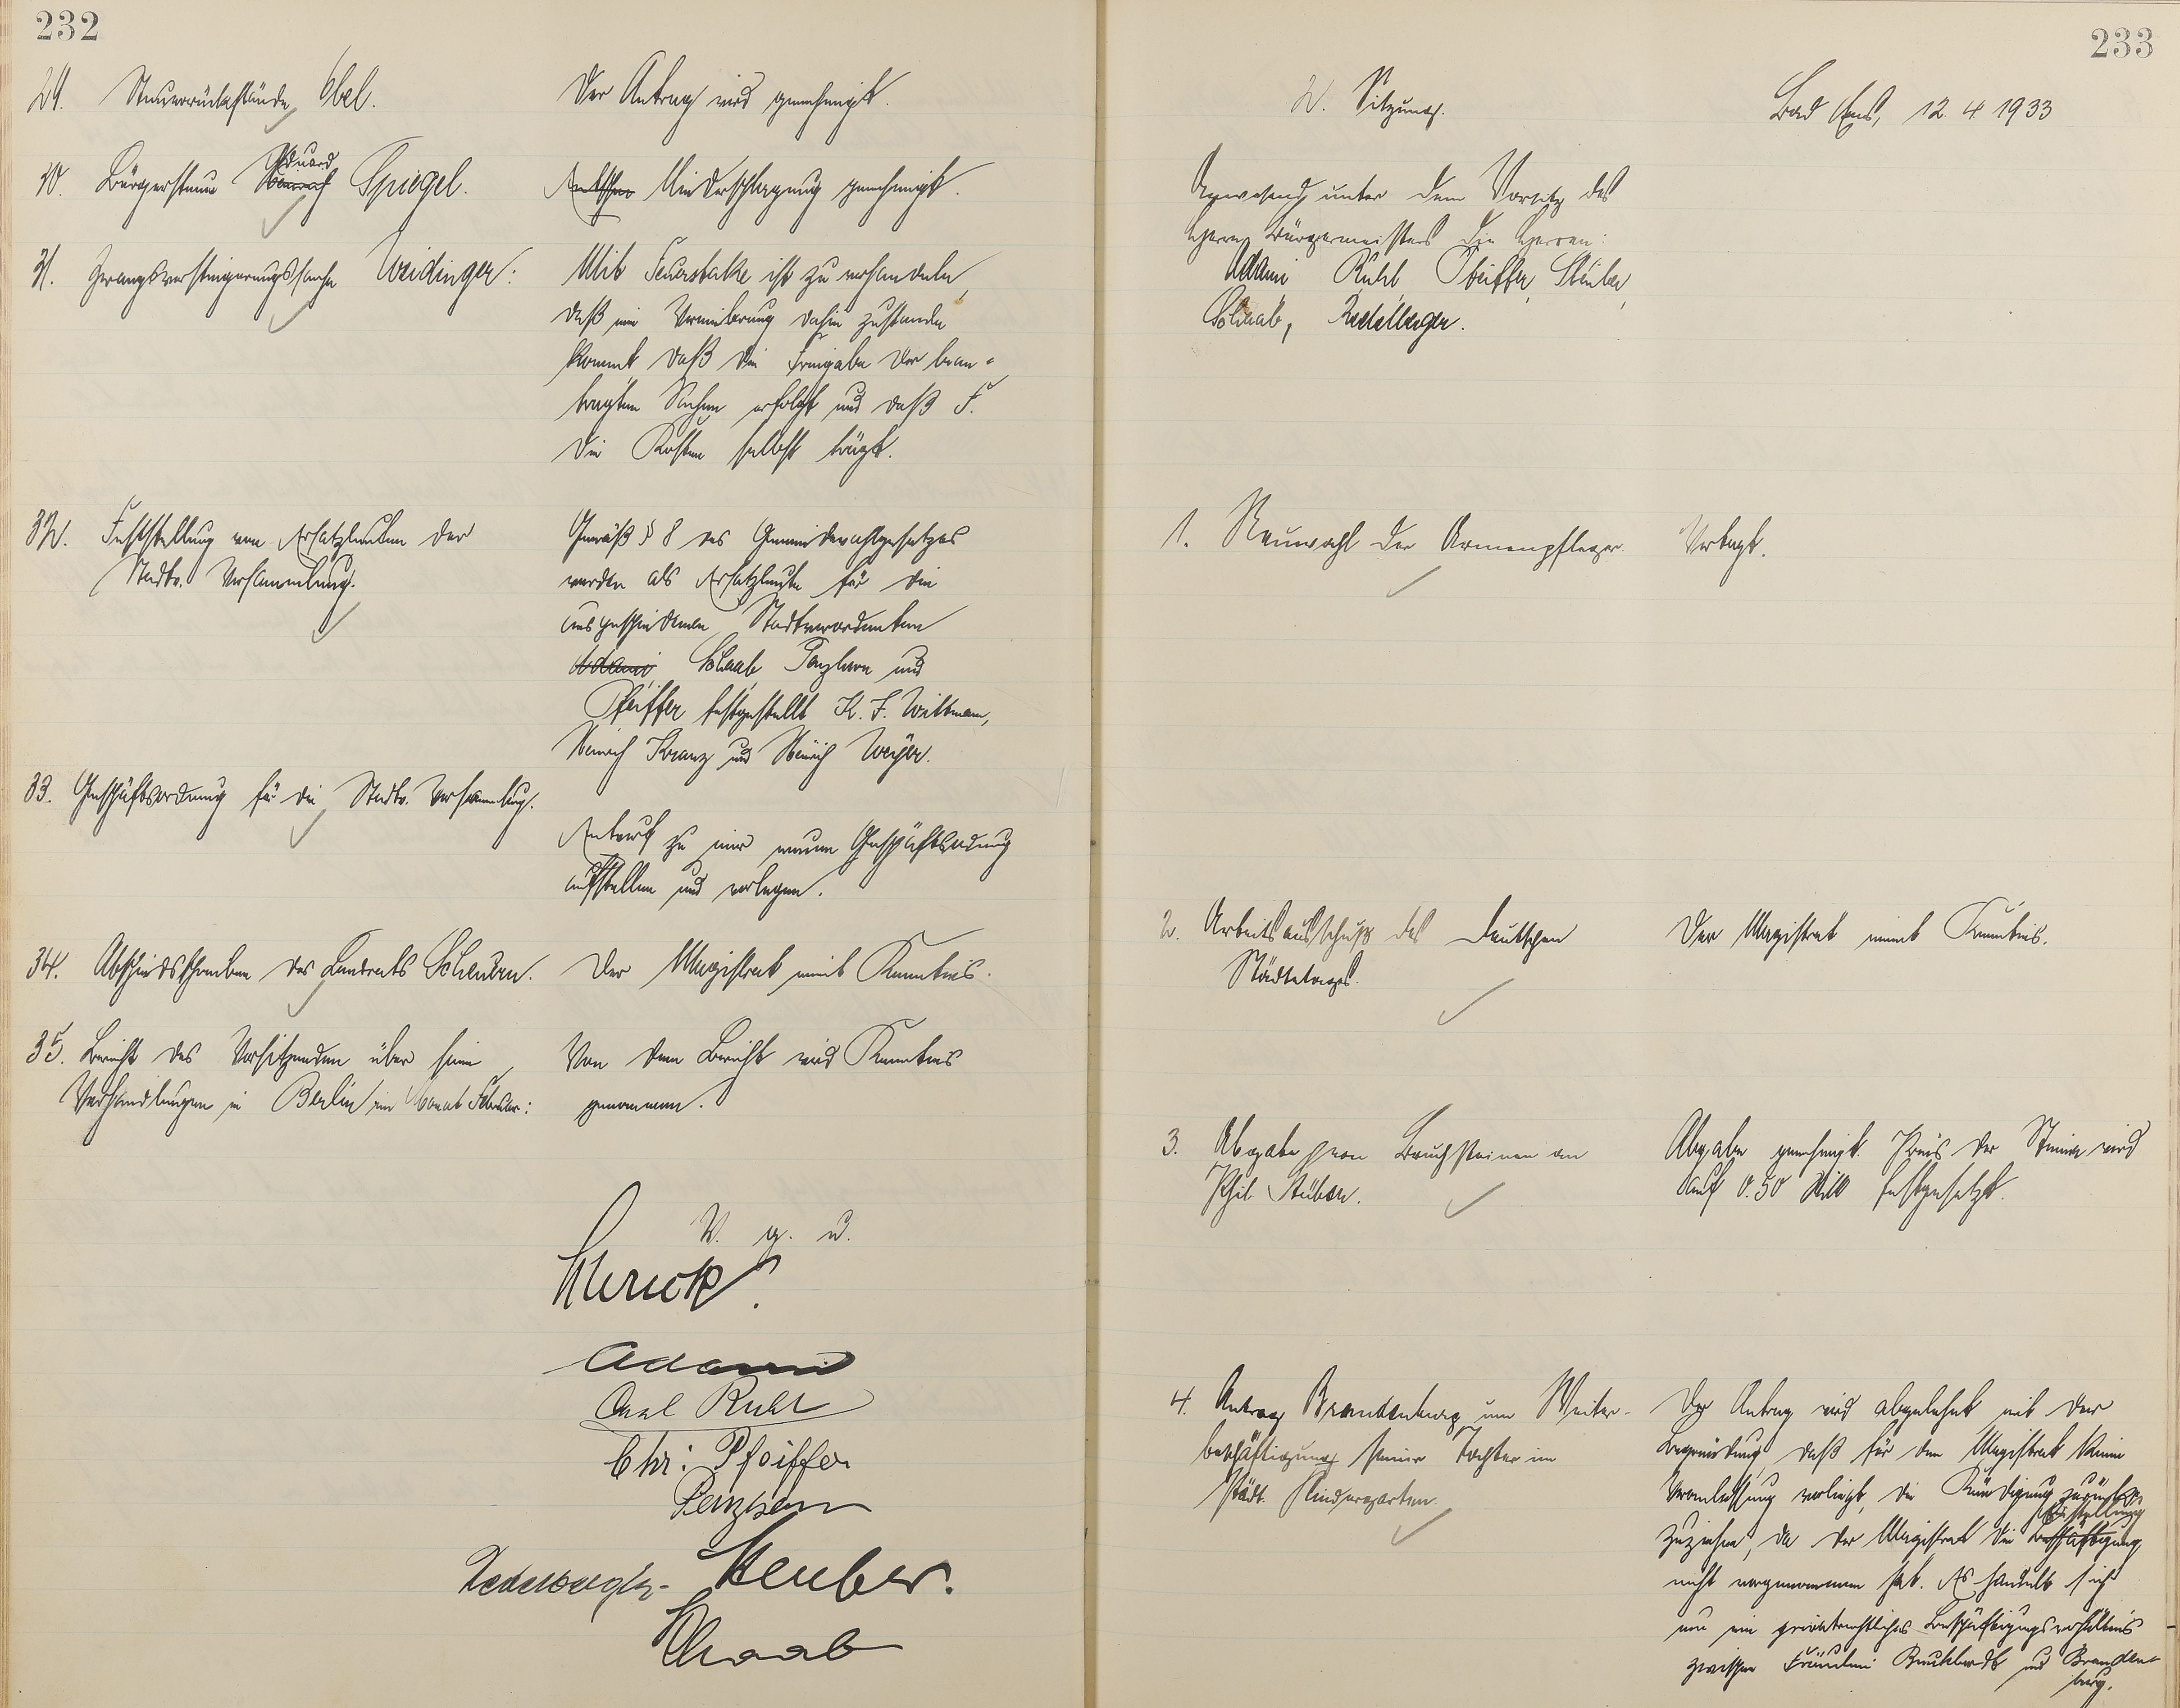 232
29. Steuerrückstände Ebel.
Der Antrag wird genehmigt.
30. Bürgersteuer Heinrich Eduard Spiegel.
Niederschlagung genehmigt.
31. Zwangsversteigerungssache Weidinger:
Mit Feuerstake ist zu verhandeln,
daß eine Vereinbarung dahin zustande
kommt, daß die Freigabe der bean-
tragten Sachen erfolgt und daß F.
die Kosten selbst trägt.
32. Feststellung von Ersatzleuten der
Stadtv. Versammlung.
Gemäß § 8 des Gemeindewahlgesetzes
werden als Ersatzleute für die
ausgeschiedenen Stadtverordneten
Adami, Schaab, Penzhorn und
Pfeiffer festgestellt K. F. Wittmann,
Heinrich Kranz und Heinrich Weyer.
33. Geschäftsordnung für die Stadtv. Versammlung.
Entwurf zu einer neuen Geschäftsordnung
aufstellen und vorlegen.
34. Abschiedsschreiben des Landrats Scheuern.
Der Magistrat nimmt Kenntnis.
35. Bericht des Vorsitzenden über seine
Verhandlungen in Berlin im Monat Februar:
Von dem Bericht wird Kenntnis
genommen.
V. g. u.
Adami
Carl Ruhl
Chr: Pfeiffer
Steuber.
Schaab
233
2. Sitzung.
Bad Ems, 12. 4. 1933
Anwesend unter dem Vorsitz des
Herrn Bürgermeisters die Herren:
Adami, Ruhl, Pfeiffer, Steuber,
Schaab,
1. Neuwahl der Armenpfleger.
Vertagt.
2. Arbeitsausschuß des Deutschen
Städtetages.
Der Magistrat nimmt Kenntnis.
3. Abgabe von Bruchsteinen an
Phil. Stüber.
Abgabe genehmigt. Preis der Steine wird
auf 0.50 RM festgesetzt.
4. Antrag Brandenburg um Weiter-
beschäftigung seiner Tochter im
Städt. Kindergarten.
Der Antrag wird abgelehnt mit der
Begründung, daß für den Magistrat keine
Veranlassung vorliegt, die Kündigung zurück-
zuziehen, da der Magistrat die Beschäftigung Einstellung
nicht vorgenommen hat. Es handelt sich
um ein privatrechtliches Beschäftigungsverhältnis
zwischen Fräulein und Branden-
burg.